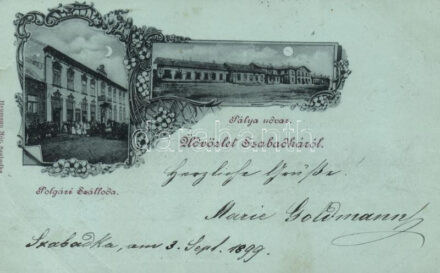 Pálya udvar.
Üdvözlet Szabadkáról.
Polgári Szálloda.
Herzliche Grüße!
Marie Goldmann
Szabadka, am 3. Sept. 1899.
darabanth